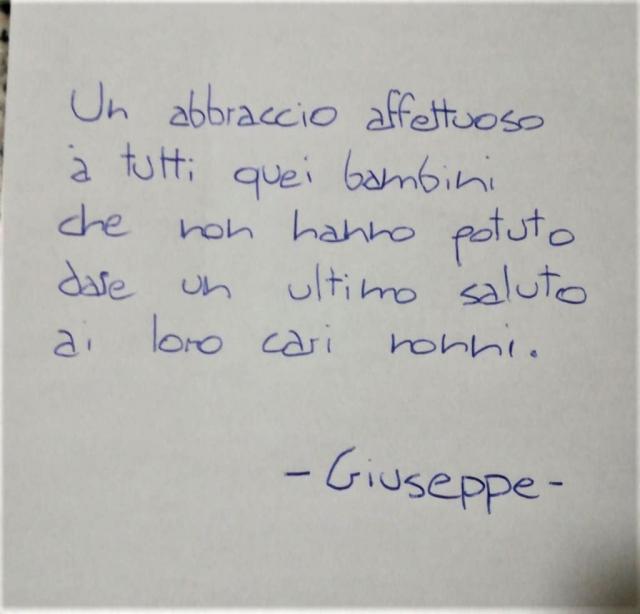 Un abbraccio affettuoso
à tutti quei bambini
che non hanno potuto
dare un ultimo saluto
ai loro cari nonni.
- Giuseppe -